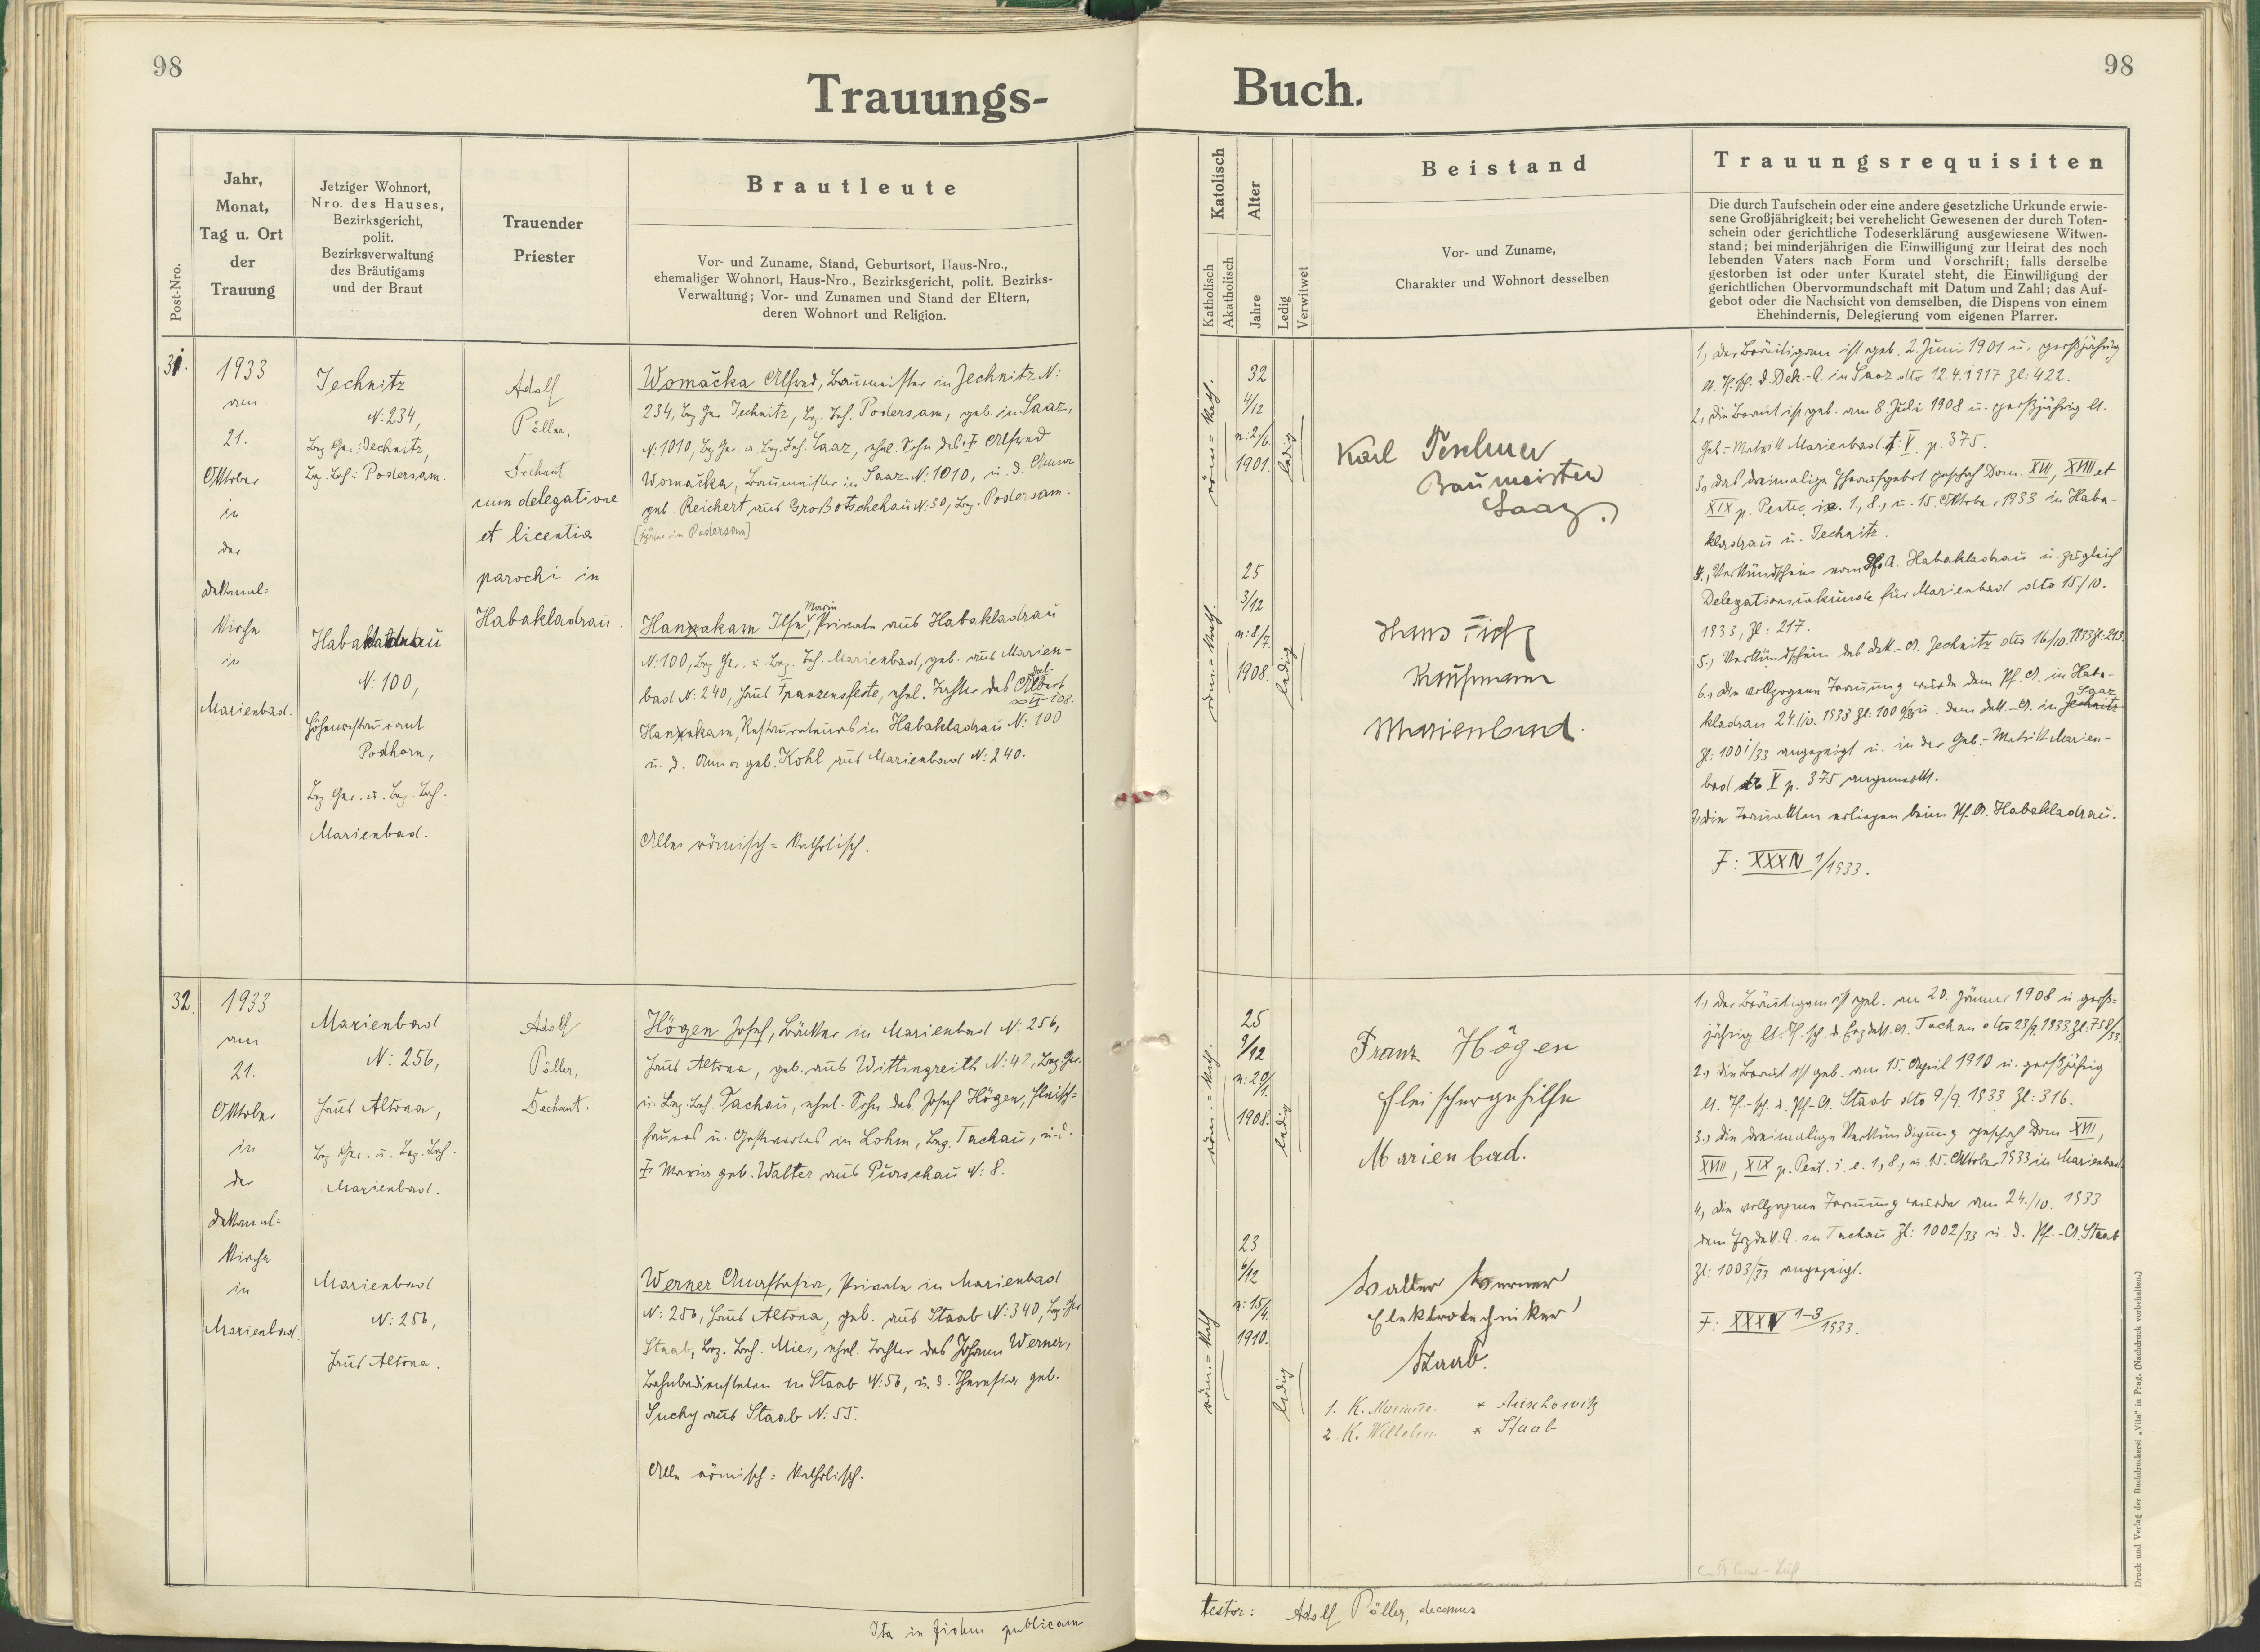 98
Trauungs-
Post-Nro.
Jahr,
Monat,
Tag u. Ort
der
Trauung
Jetziger Wohnort,
Nro. des Hauses,
Bezirksgericht,
polit.
Bezirksverwaltung
des Bräutigams
und der Braut
Trauender
Priester
Brautleute
Vor- und Zuname, Stand, Geburtsort, Haus-Nro.,
ehemaliger Wohnort, Haus-Nro., Bezirksgericht, polit. Bezirks-
Verwaltung; Vor- und Zunamen und Stand der Eltern,
deren Wohnort und Religion.
31.
1933
am
21.
Oktober
in
der
Dekanal-
kirche
in
Marienbad.
Jechnitz
N: 234,
Bez. Ger.: Jechnitz,
Bez. Beh.: Podersam.
Habakladrau
N: 100,
Höhenrestaurant
Podhorn,
Bez. Ger. u. Bez. Beh.
Marienbad.
Adolf
Pöller,
Dechant
cum delegatione
et licentia
parochi in
Habakladrau.
Womačka Alfred, Baumeister in Jechnitz N:
234, Bez. Ger. Jechnitz, Bez. Beh. Podersam, geb. in Saaz,
N: 1010, Bez. Ger. u. Bez. Beh. Saaz, ehel. Sohn des † Alfred
Womačka, Baumeister in Saaz N: 1010, u. d. Anna
geb. Reichert aus Großotschehau N: 50, Bez. Podersam.
in Podersam]
Marie
Hanakam Ilse, Private aus Habakladrau
N: 100, Bez. Ger. u. Bez. Beh. Marienbad, geb. aus Marien-
bad N: 240, Haus Franzensfeste, ehel. Tochter des
Hanakam, Restaurateurs in Habakladrau N: 100
u. d. Anna geb. Kohl aus Marienbad N: 240.
Alles römisch-katholisch.
32.
1933
am
21.
Oktober
in
der
Dekanal-
kirche
in
Marienbad.
Marienbad
N: 256,
Haus Altona,
Bez. Ger. u. Bez. Beh.
Marienbad.
Marienbad
N: 256,
Haus Altona.
Adolf
Pöller,
Dechant.
Högen Josef, Bäcker in Marienbad N: 256,
Haus Altona, geb. aus Wittingreith N: 42, Bez. Ger.
u. Bez. Beh. Tachau, ehel. Sohn des Josef Högen, Fleisch-
hauers u. Gastwirtes in Lohm, Bez. Tachau, u. d.
† Maria geb. Walter aus Purschau N: 8.
Werner Anastasia, Private in Marienbad
N: 256, Haus Altona, geb. aus Staab N: 340, Bez. Ger.
Staab, Bez. Beh. Mies, ehel. Tochter des Johann Werner,
Bahnbediensteten in Staab N: 56, u. d. Theresia geb.
Suchy aus Staab N: 55.
Alle römisch-katholisch.
Ita in fidem publicam
98
Buch.
Katolisch
Alter
Katholisch
Akatholisch
Jahre
Ledig
Verwitwet
Beistand
Vor- und Zuname,
Charakter und Wohnort desselben
Trauungsrequisiten
Die durch Taufschein oder eine andere gesetzliche Urkunde erwie-
sene Großjährigkeit; bei verehelicht Gewesenen der durch Toten-
schein oder gerichtliche Todeserklärung ausgewiesene Witwen-
stand; bei minderjährigen die Einwilligung zur Heirat des noch
lebenden Vaters nach Form und Vorschrift; falls derselbe
gestorben ist oder unter Kuratel steht, die Einwilligung der
gerichtlichen Obervormundschaft mit Datum und Zahl; das Auf-
gebot oder die Nachsicht von demselben, die Dispens von einem
Ehehindernis, Delegierung vom eigenen Pfarrer.
röm.-kath.
32
4/12
n: 2/6.
1901.
ledig
röm.-kath.
25
3/12
n: 8/7.
1908.
ledig
Karl
Baumeister
Saaz.
Hans
Kaufmann
Marienbad.
1., Der Bräutigam ist geb. 2. Juni 1901 u. großjährig
lt. T. Sch. d. Dek.-A. in Saaz dto 12.4.1917 Zl: 422.
2., Die Braut ist geb. am 8. Juli 1908 u. großjährig lt.
Geb.-Matrik Marienbad t: V p. 375.
3., Das dreimalige Eheaufgebot geschah Dom. XVII, XVIII et
XIX p. Pentec. i.e. 1., 8., u. 15. Oktober 1933 in Haba-
kladrau u. Jechnitz.
4., Verkündschein vom Pf. A. Habakladrau u. zugleich
Delegationsurkunde für Marienbad dto 15/10.
1933, Zl: 217.
5., Verkündschein des Dek.-A. Jechnitz dto 16/10. 1933 Zl: 213.
6., Die vollzogene Trauung wurde dem Pf. A. in Haba-
Saaz
kladrau 24./10. 1933 Zl: 1000/33 u. dem Dek.-A. in Jechnitz
Zl: 1001/33 angezeigt u. in der Geb.-Matrik Marien-
bad to V p. 375 angemerkt.
7., Die Trauakten erliegen beim Pf. A. Habakladrau.
F: XXXIV 1/1933.
röm.-kath.
25
9/12
n: 20/1.
1908.
ledig
röm.-kath
23
6/12
n: 15/4.
1910.
ledig
Franz Högen
Fleischergehilfe
Marienbad.
Walter Werner
Elektrotechniker
Staab.
1. K. Marianne. * Auschowitz
2. K. Wilhelm. * Staab
1., Der Bräutigam ist geb. am 20. Jänner 1908 u. groß-
jährig lt. T. Sch. d. Erzdek. A. Tachau dto 23/9. 1933 Zl: 758/33.
2., Die Braut ist geb. am 15. April 1910 u. großjährig
lt. T.-Sch. d. Pf.-A. Staab dto 9./9. 1933 Zl: 316.
3., Die dreimalige Verkündigung geschah Dom XVII,
XVIII, XIX p. Pent. i. e. 1., 8., u. 15. Oktober 1933 in Marienbad.
4., Die vollzogene Trauung wurde am 24./10. 1933
dem Erzdek. A. in Tachau Zl: 1002/33 u. d. Pf.-A. Staab
Zl: 1003/33 angezeigt.
F: XXXIV 1-3/1933.
testor: Adolf Pöller, decanus
Druck und Verlag der Buchdruckerei „Vita“ in Prag. (Nachdruck vorbehalten.)